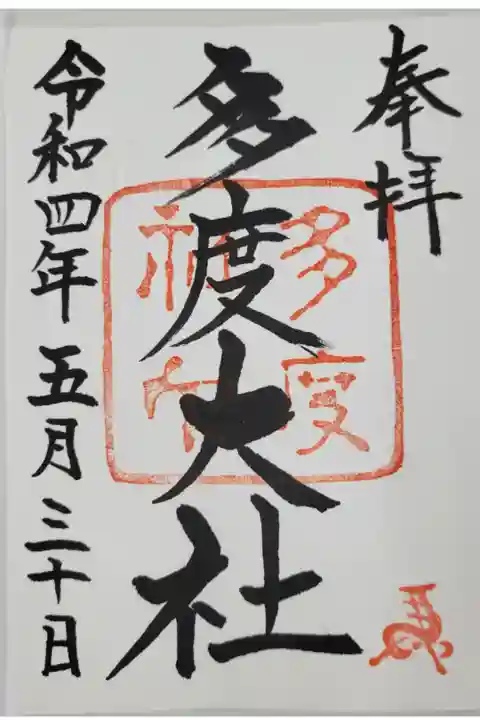 奉拝
多度大社
令和四年五月三十日
多度